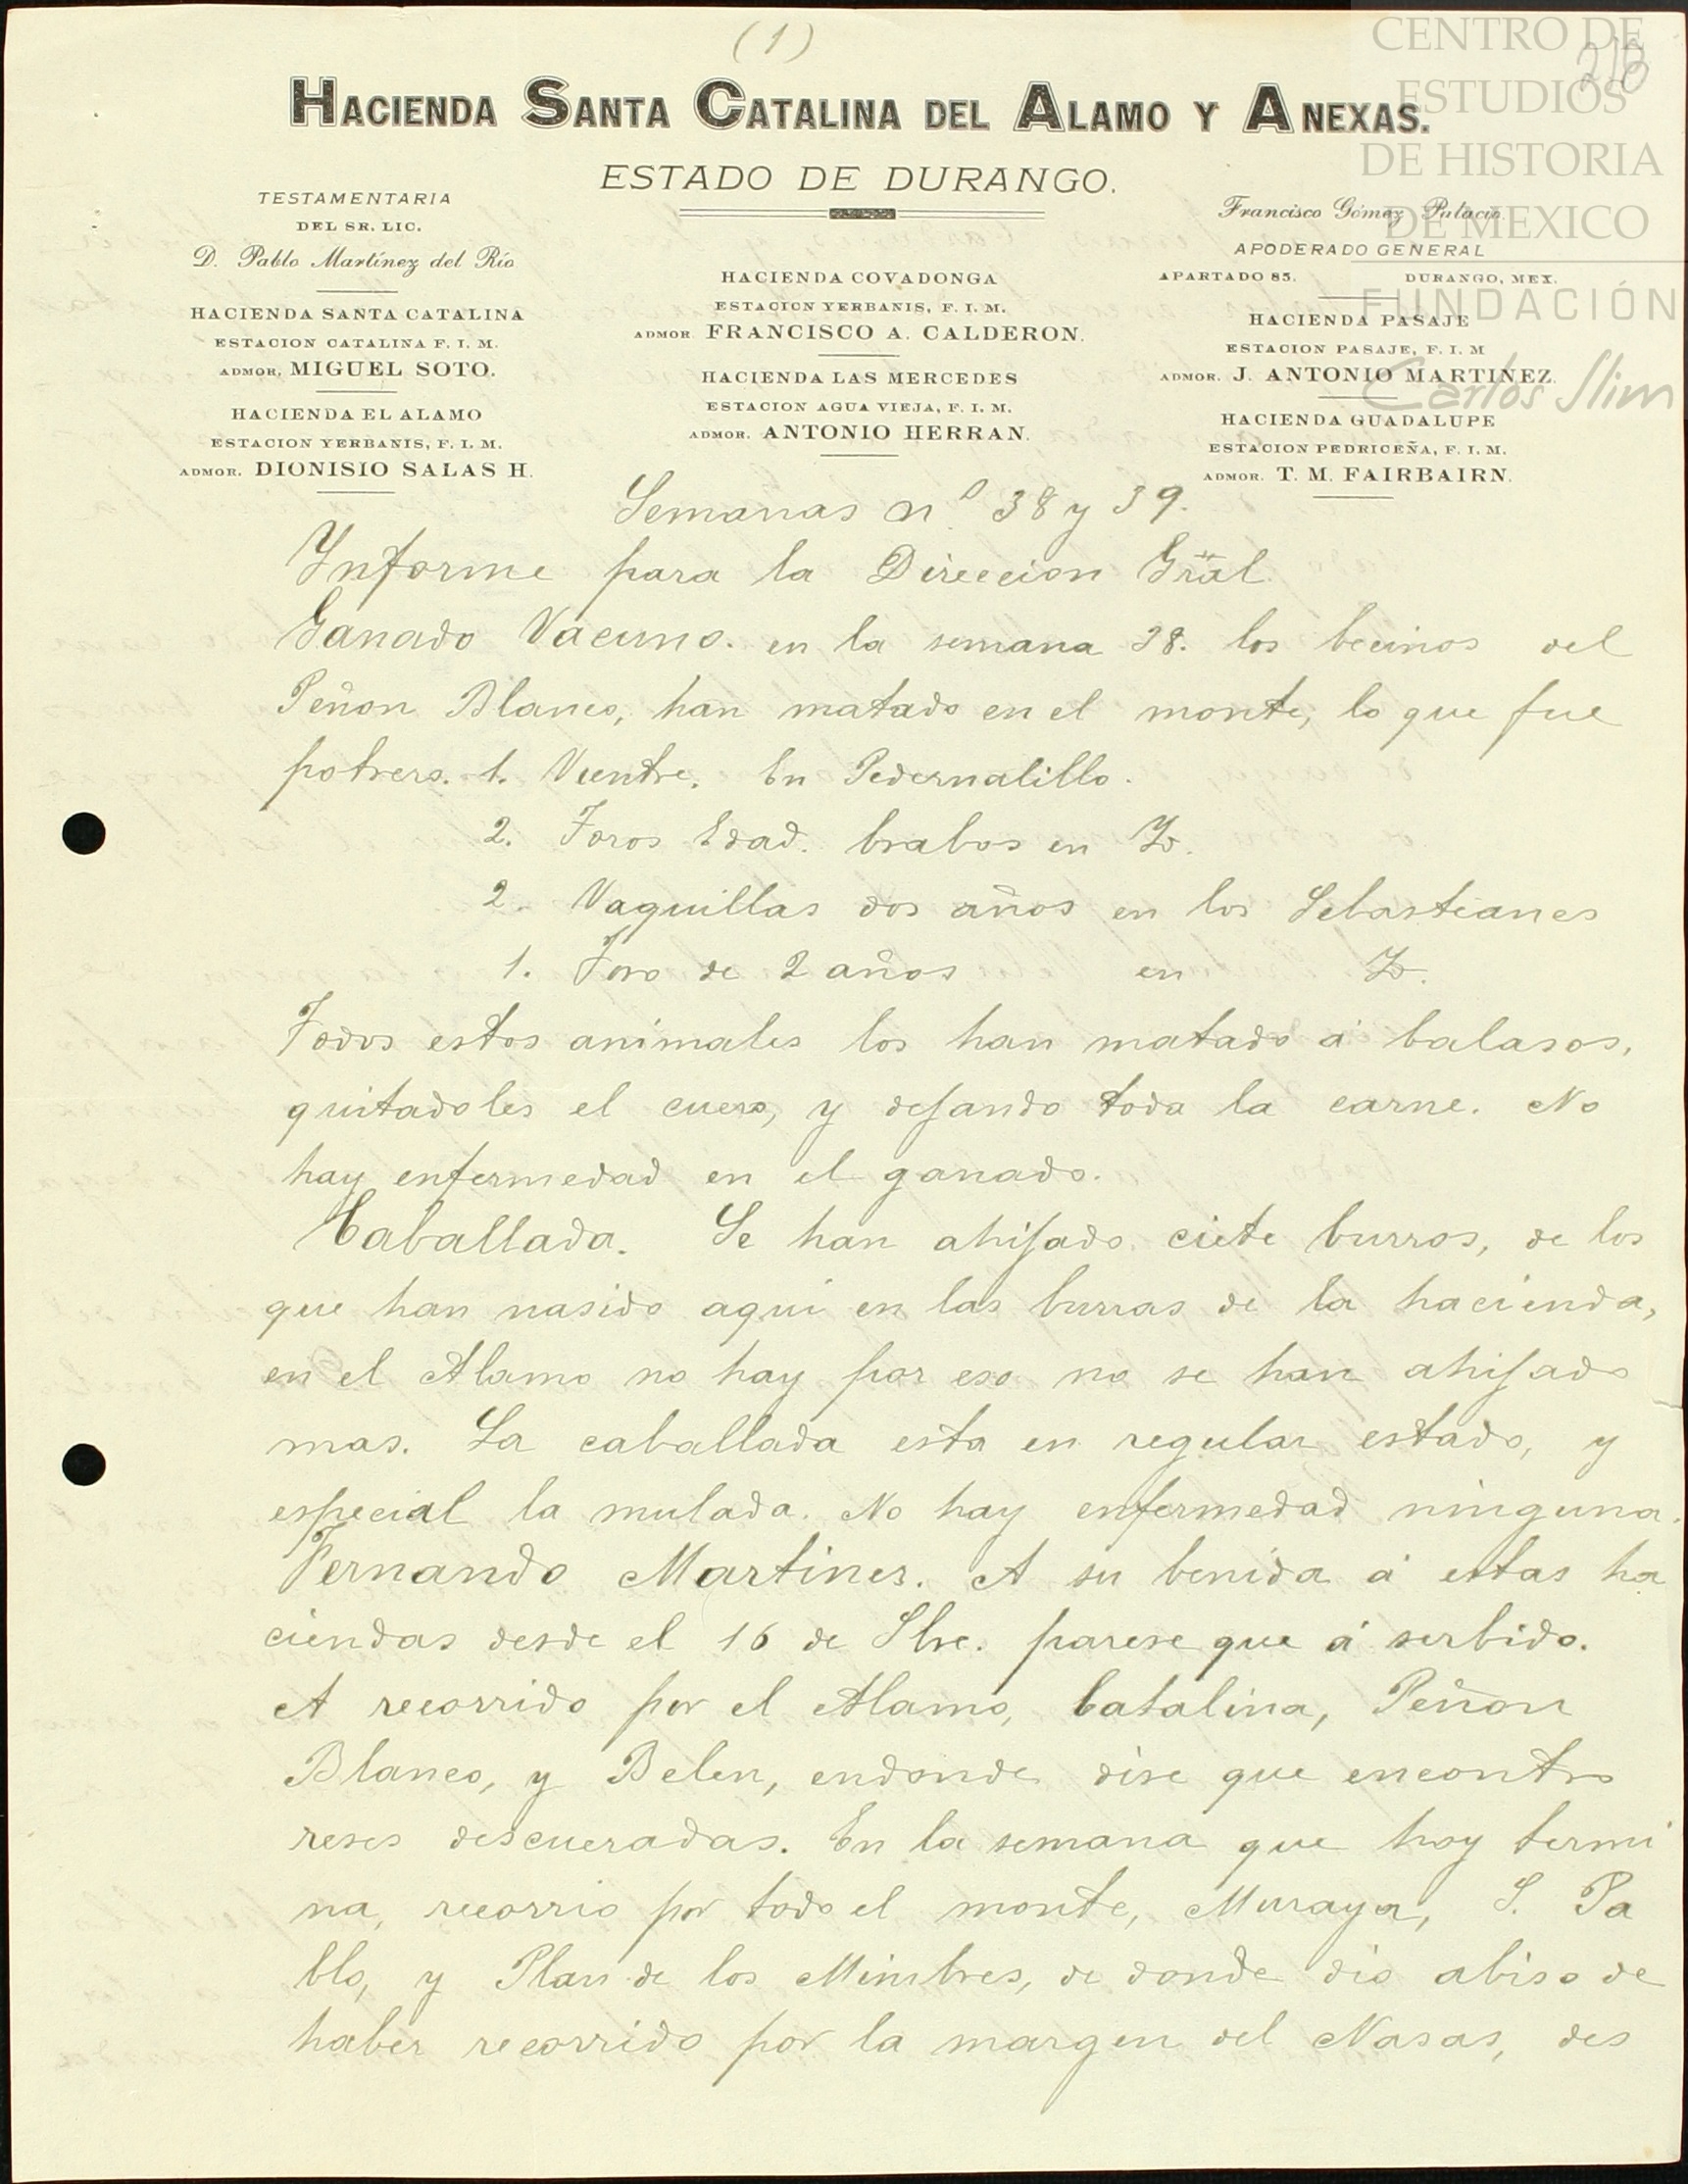 (1)
HACIENDA SANTA CATALINA DEL ALAMO Y ANEXAS.
ESTADO DE DURANGO.
TESTAMENTARIA
DEL SR. LIC.
D. Pablo Martínez del Río
HACIENDA SANTA CATALINA
ESTACION CATALINA F. I. M.
ADMOR. MIGUEL SOTO.
HACIENDA EL ALAMO
ESTACION YERBANIS, F. I. M.
ADMOR. DIONISIO SALAS H.
HACIENDA COVADONGA
ESTACION YERBANIS, F. I. M.
ADMOR. FRANCISCO A. CALDERON.
HACIENDA LAS MERCEDES
ESTACION AGUA VIEJA, F. I. M.
ADMOR. ANTONIO HERRAN.
Francisco Gómez Palacio.
APODERADO GENERAL
APARTADO 85. DURANGO, MEX.
HACIENDA PASAJE
ESTACION PASAJE, F. I. M
ADMOR. J. ANTONIO MARTINEZ.
HACIENDA GUADALUPE
ESTACION PEDRICEÑA, F. I. M.
ADMOR. T. M. FAIRBAIRN.
CENTRO DE
ESTUDIOS
DE HISTORIA
DE MEXICO
FUNDACIÓN
Carlos Slim
Semanas nº 38 y 39.
Ynforme para la Direccion Gral
Ganado Vacuno. en la semana 38. los becinos del
Peñon Blanco, han matado en el monte, lo que fue
potrero. 1. Vientre. En Pedernalillo.
2. Toros Edad. brabos en Yd.
2. Vaquillas dos años en los Sebastianes
1. Toro de 2 años en Yd.
Todos estos animales los han matado á balasos,
quitadoles el cuero, y dejando toda la carne. No
hay enfermedad en el ganado.
Caballada. Se han ahijado ciete burros, de los
que han nasido aqui en las burras de la hacienda,
en el Alamo no hay por eso no se han ahijado
mas. La caballada esta en regular estado, y
especial la mulada. No hay enfermedad ninguna.
Fernando Martines. A su benida á estas ha
ciendas desde el 16 de Sbre. parese que á serbido.
A recorrido por el Alamo, Catalina, Peñon
Blanco, y Belen, endonde dise que encontro
reses descueradas. En la semana que hoy termi
na, recorrio por todo el monte, Muraya, S. Pa
blo, y Plan de los Mimbres, de donde dio abiso de
haber recorrido por la margen del Nasas, des